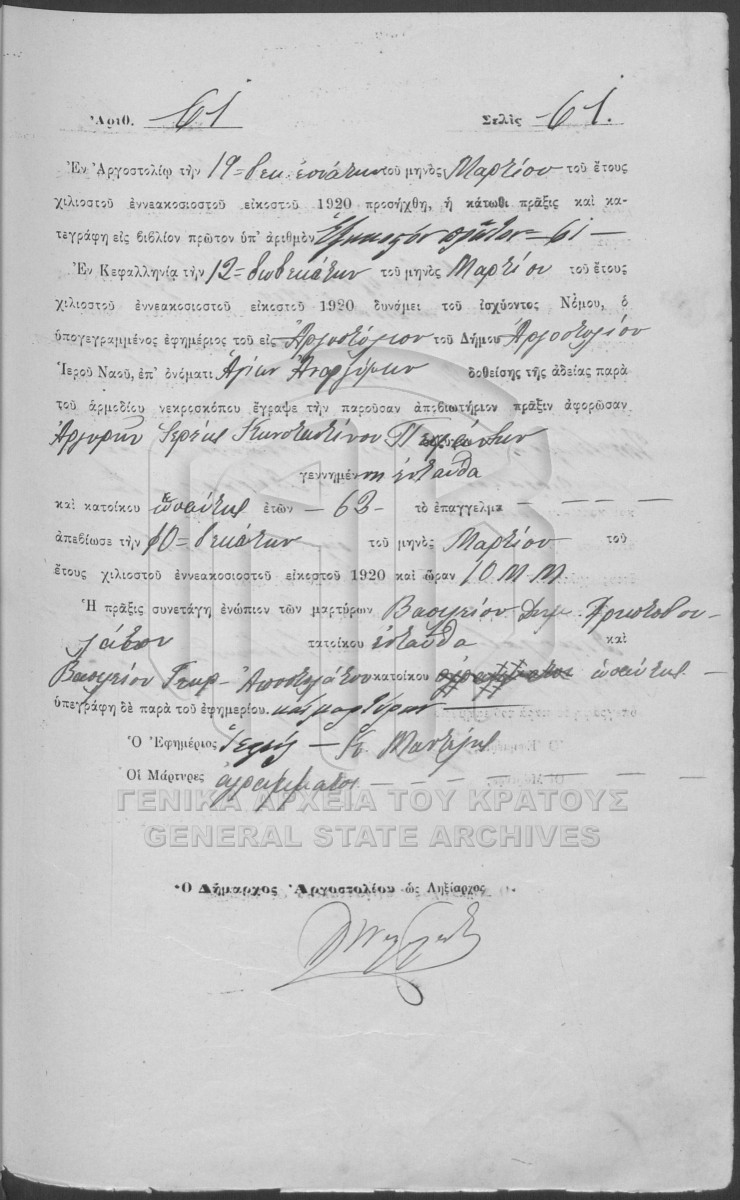 Ἀριθ. 61 Σελὶς 61.
Ἐν Ἀργοστολίῳ τὴν 19= δεκ. ἐννάτην τοῦ μηνὸς Μαρτίου τοῦ ἔτους
χιλιοστοῦ ἐννεακοσιοστοῦ εἰκοστοῦ 1920 προσήχθη, ἡ κάτωθι πρᾶξις καὶ κα-
τεγράφη εἰς βιβλίον πρῶτον ὑπ' ἀριθμὸν Ἑξηκοστόν πρῶτον = 61 —
Ἐν Κεφαλληνίᾳ τὴν 12= δωδεκάτην τοῦ μηνὸς Μαρτίου τοῦ ἔτους
χιλιοστοῦ ἐννεακοσιοστοῦ εἰκοστοῦ 1920 δυνάμει τοῦ ἰσχύοντος Νόμου, ὁ
ὑπογεγραμμένος ἐφημέριος τοῦ εἰς Ἀργοστόλιον τοῦ Δήμου Ἀργοστολίου
Ἱεροῦ Ναοῦ, ἐπ' ὀνόματι Ἁγίων Ἀναργύρων δοθείσης τῆς ἀδείας παρὰ
τοῦ ἁρμοδίου νεκροσκόπου ἔγραψε τὴν παροῦσαν ἀποβιωτήριον πρᾶξιν ἀφορῶσαν
Ἀργυρῆν Ἱερέως Κωνσταντίνου
γεννημένην ἐνταῦθα
καὶ κατοίκου ὡσαύτως ἐτῶν — 62 — τὸ ἐπαγγελμα — — — —
ἀπεβίωσε τὴν 10= δεκάτην τοῦ μηνὸς Μαρτίου τοῦ
ἔτους χιλιοστοῦ ἐννεακοσιοστοῦ εἰκοστοῦ 1920 καὶ ὥραν 10 Μ.Μ.
Ἡ πρᾶξις συνετάγη ἐνώπιον τῶν μαρτύρων Βασιλείου Δημ.
τατοίκου ἐνταῦθα καὶ
Βασιλείου Γεωρ. Ἀποστολάτου κατοίκου ὡσαύτως —
ὑπεγράφη δὲ παρὰ τοῦ ἐφημερίου. καὶ μαρτύρων —
Ὁ Ἐφημέριος Ἱερεὺς — Κ.
Οἱ Μάρτυρες ἀγράμματοι — — — —
ΓΕΝΙΚΑ ΑΡΧΕΙΑ ΤΟΥ ΚΡΑΤΟΥΣ
GENERAL STATE ARCHIVES
Ὁ Δήμαρχος Ἀργοστολίου ὡς Ληξίαρχος